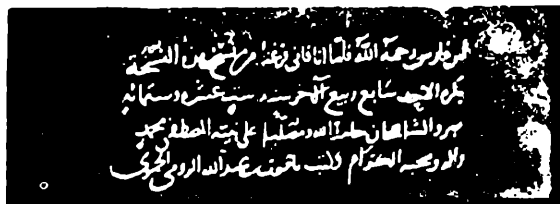 رحمة الله فأما أنا فاني فرغت من نسخ هذه النسخة
بكرة الاحد سابع ربيع الآخر سنة ست عشرة وستمائة
بمرو الشاهجان حامدا لله ومصليا على نبيه المصطفى محمد
وآله وصحبه الكرام وكتب ياقوت بن عبد الله الرومي الحموي